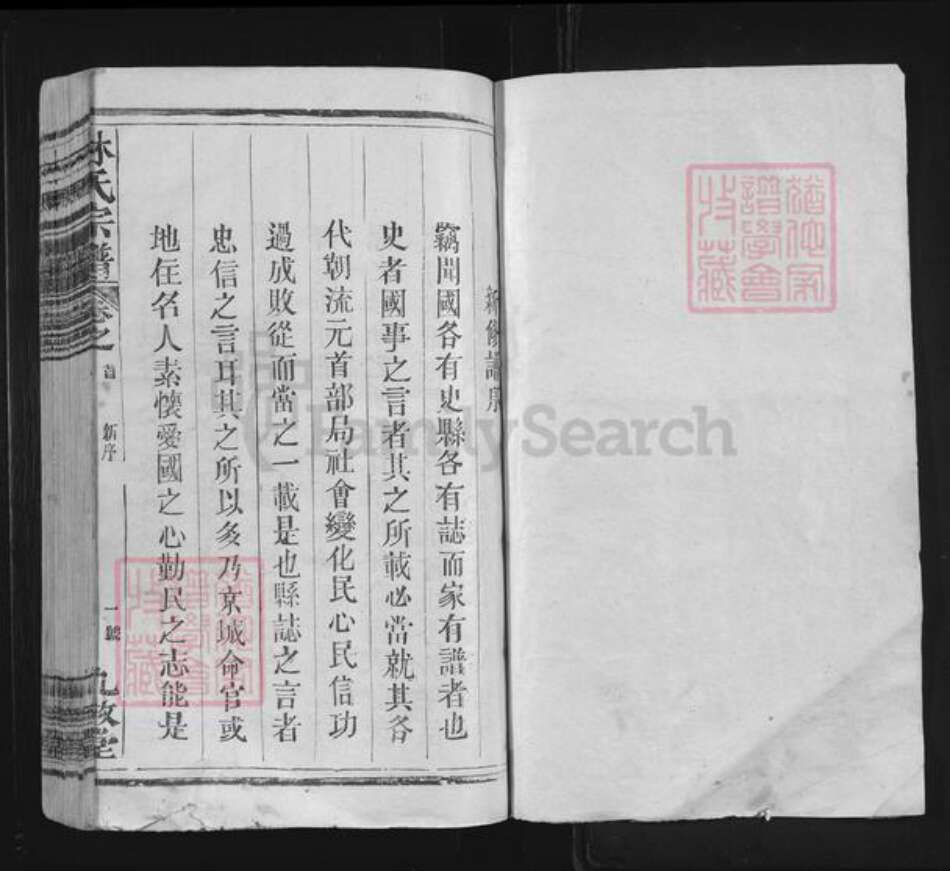 猶他家
譜學會
收藏
新修譜序
竊聞國各有史縣各有誌而家有譜者也
史者國事之言者其之所載必當就其各
代朝流元首部局社會變化民心民信功
過成敗從而當之一載是也縣誌之言者
忠信之言耳其之所以多乃京城命官或
地住名人素懷愛國之心勤民之志能是
林氏宗譜 卷之首 新序 一號 九牧堂
猶他家
譜學會
收藏
FamilySearch